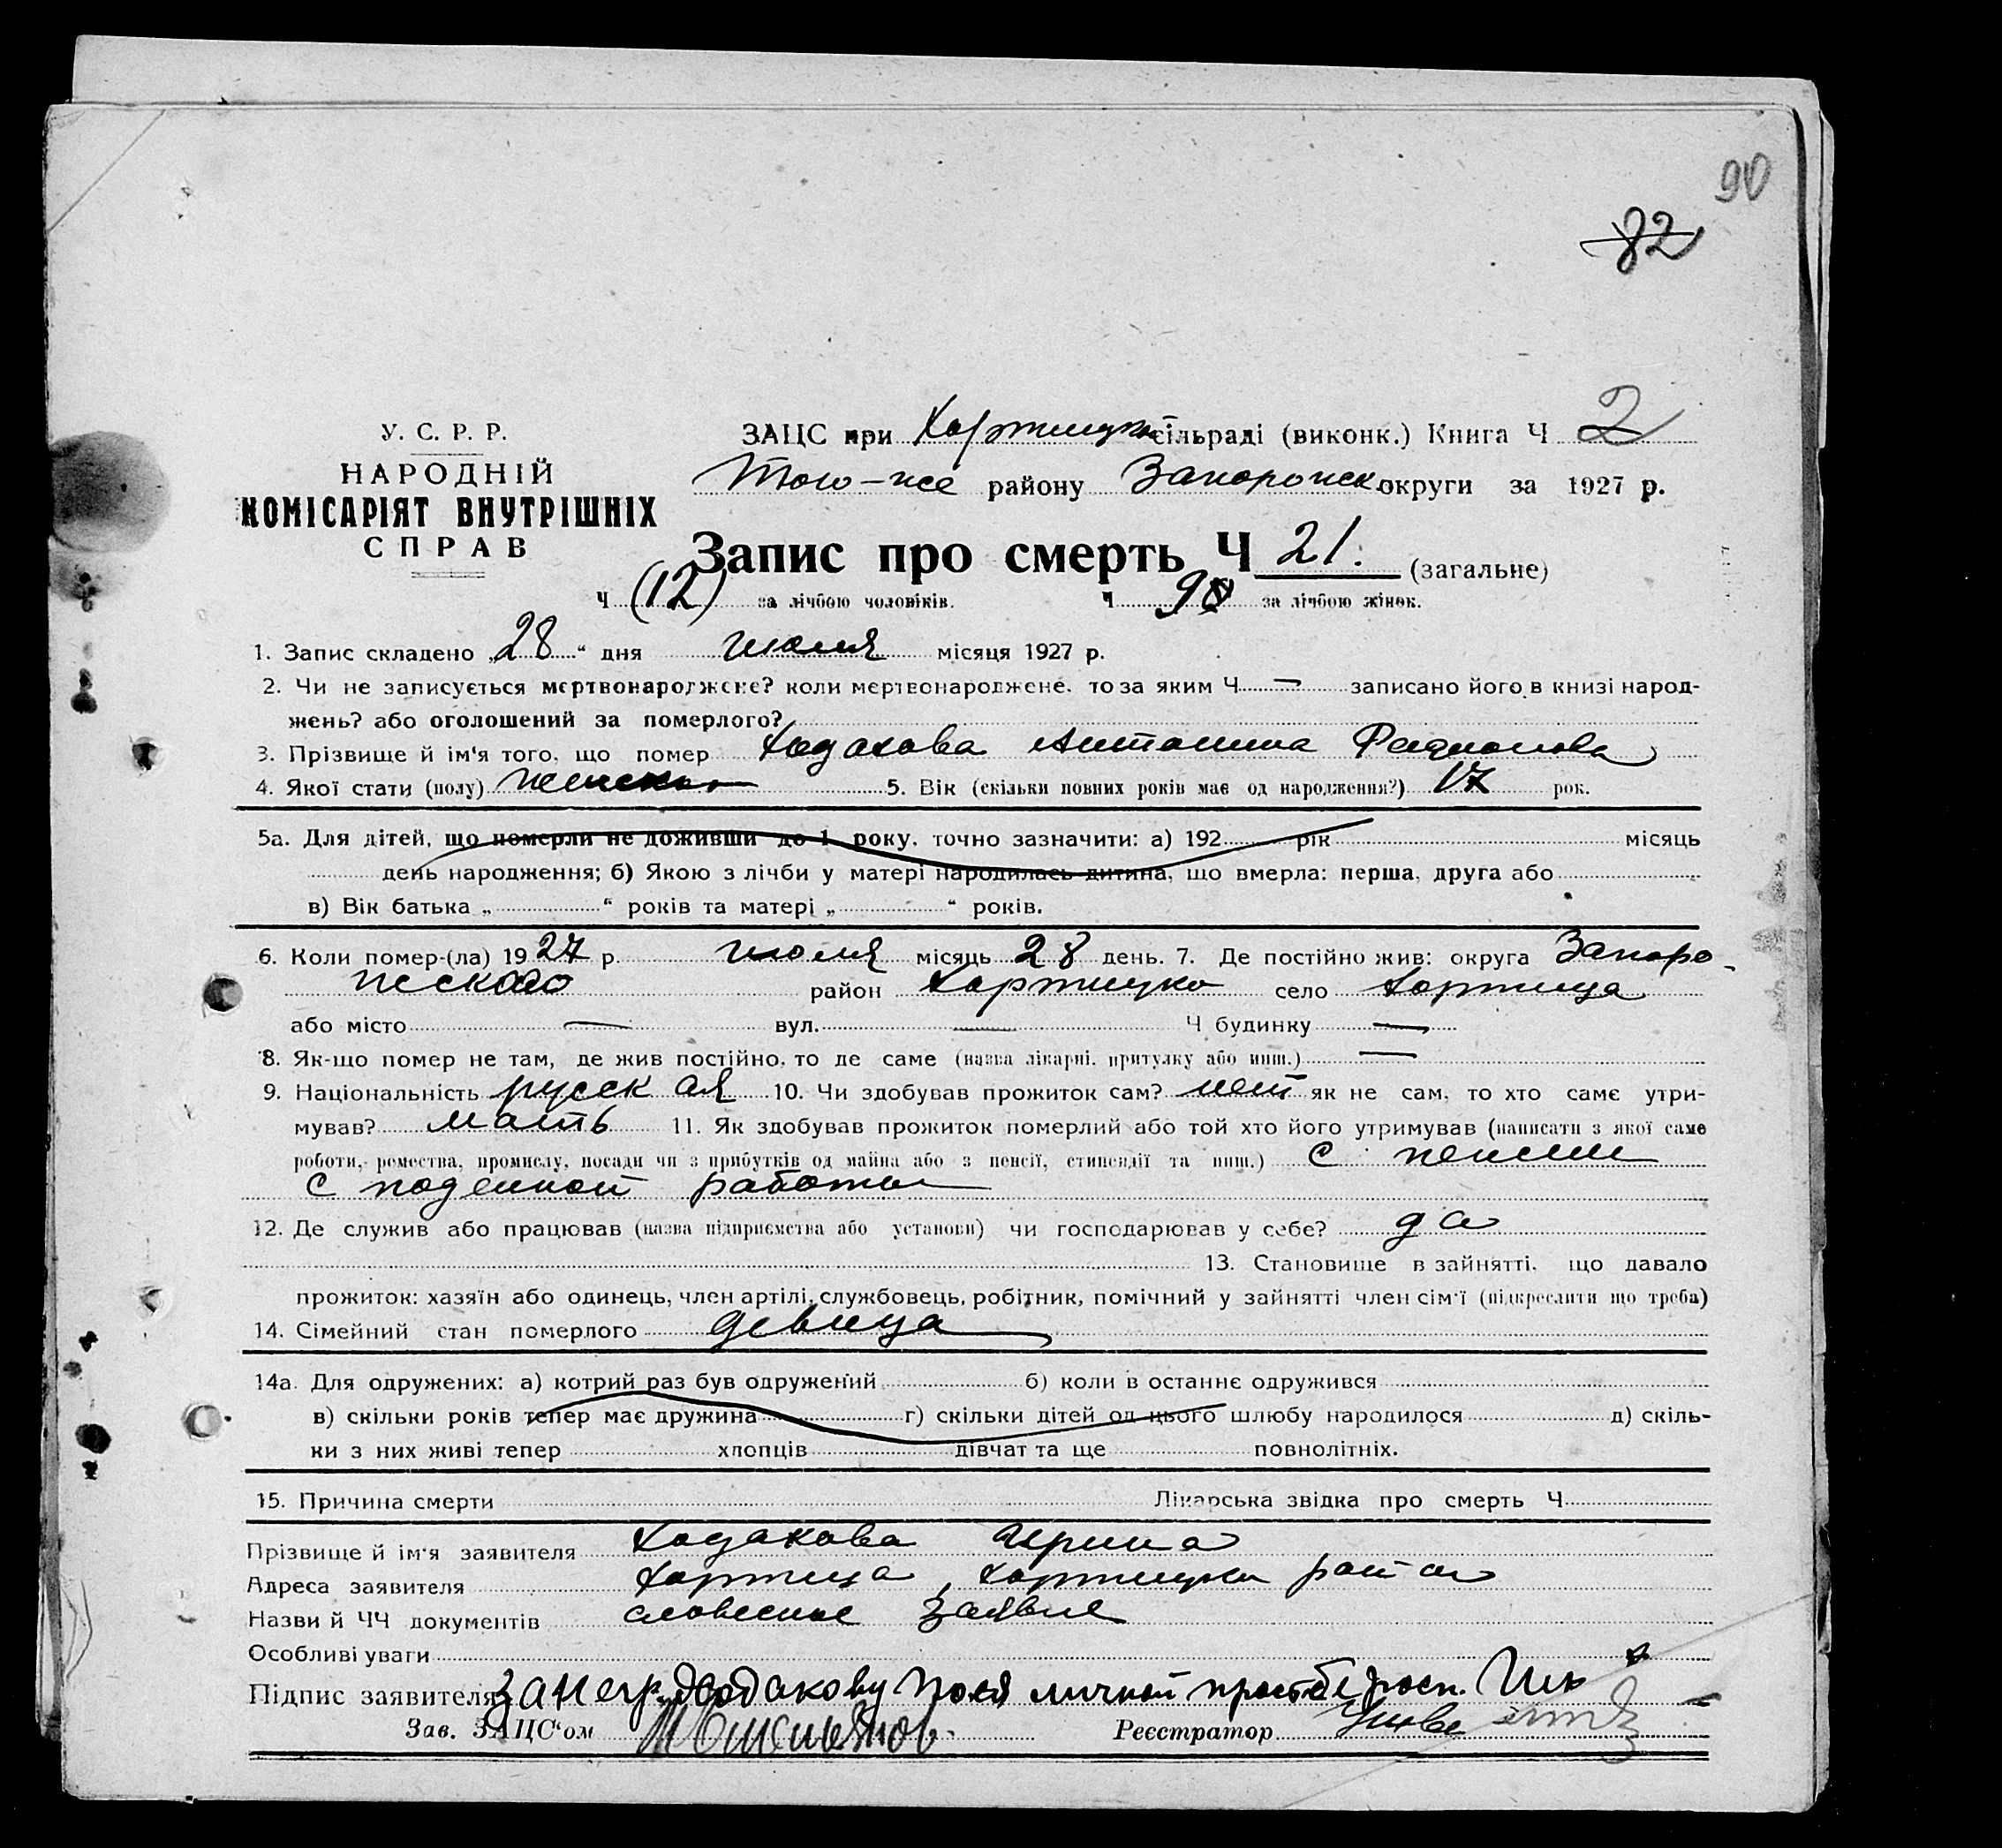 90
82
У. С. Р. Р.
НАРОДНІЙ
КОМІСАРІЯТ ВНУТРІШНІХ
СПРАВ
ЗАЦС при Хортицк. сільраді (виконк.) Книга Ч 2
Того-же району Запорожск. округи за 1927 р.
Запис про смерть Ч 21. (загальне)
Ч (12) за лічбою чоловіків. Ч 9 за лічбою жінок.
1. Запис складено „28“ дня июля місяця 1927 р.
2. Чи не записується мертвонароджене? коли мертвонароджене, то за яким Ч — записано його в книзі народ-
жень? або оголошений за померлого?
3. Прізвище й ім'я того, що помер Ходакова Антонина
4. Якої стати (полу) женска 5. Вік (скільки повних років має од народження?) 17 рок.
5а. Для дітей, що померли не доживши до 1 року, точно зазначити: а) 192 рік місяць
день народження; б) Якою з лічби у матері народилась дитина, що вмерла: перша, друга або
в) Вік батька „ “ років та матері „ “ років.
6. Коли помер-(ла) 1927 р. июля місяць 28 день. 7. Де постійно жив: округа Запоро-
жского район Хортицко село Хортица
або місто — вул. — Ч будинку —
8. Як-що помер не там, де жив постійно, то де саме (назва лікарні, притулку або инш.) —
9. Національність русск ая 10. Чи здобував прожиток сам? нет як не сам, то хто саме утри-
мував? мать 11. Як здобував прожиток померлий або той хто його утримував (написати з якої саме
роботи, ремества, промислу, посади чи з прибутків од майна або з пенсії, стипендії та инш.) с пенсии
с поденной работы
12. Де служив або працював (назва підприємства або установи) чи господарював у себе? да
13. Становище в зайнятті, що давало
прожиток: хазяїн або одинець, член артілі, службовець, робітник, помічний у зайнятті член сім'ї (підкреслити що треба)
14. Сімейний стан померлого девица
14а. Для одружених: а) котрий раз був одружений б) коли в останнє одружився
в) скільки років тепер має дружина г) скільки дітей од цього шлюбу народилося д) скіль-
ки з них живі тепер хлопців дівчат та ще повнолітніх.
15. Причина смерти Лікарська звідка про смерть Ч
Прізвище й ім'я заявителя Ходакова Ирина
Адреса заявителя Хортица, Хортицки района
Назви й ЧЧ документів словесное заявле
Особливі уваги
Підпис заявителя за негр. Ходакову по ея личной просьбе росп.
Зав. ЗАЦС'ом Реєстратор